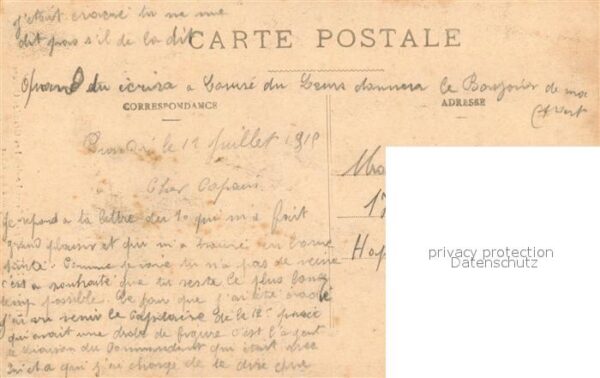 j'etait evacué tu ne me
dit pas s'il de la dit
CARTE POSTALE
Quand tu ecrira a Desiré du Leurs donnera le Bonjour de moi
CORRESPONDANCE
ADRESSE
le 12 Juillet 1915
Cher Copain
Je repond a ta lettre du 10 qui m'a fait
grand plaisir et qui m'a trouvé en bonne
santé. Comme je vois tu n'a pas de veine
c'est a souhaité que tu reste le plus long
temp possible. Le jour que j'ai été evacué
j'ai vu venir le Capitaine de la 12e
qui avait une drole de figure c'est l'agent
de liaison du Commandant qui etait avec
lui qui j'ai chargé de te dire que
17
Hop
privacy protection
Datenschutz